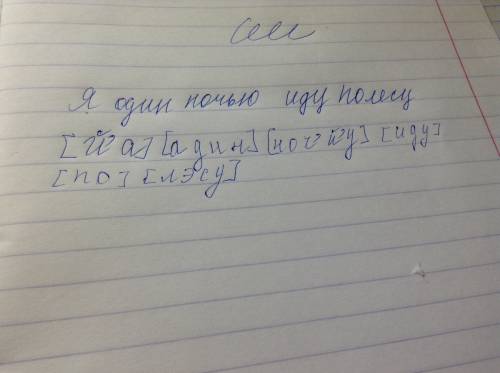 Я один ночью иду полесу
[йа] [адин] [ночйу] [иду]
[по] [лэсу]